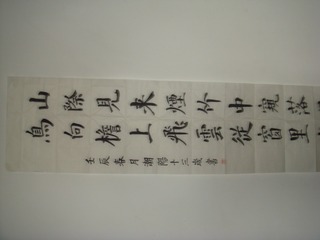 山際見來煙竹中窺落
鳥向檐上飛雲從窗里
壬辰春月潮陽十三歲書